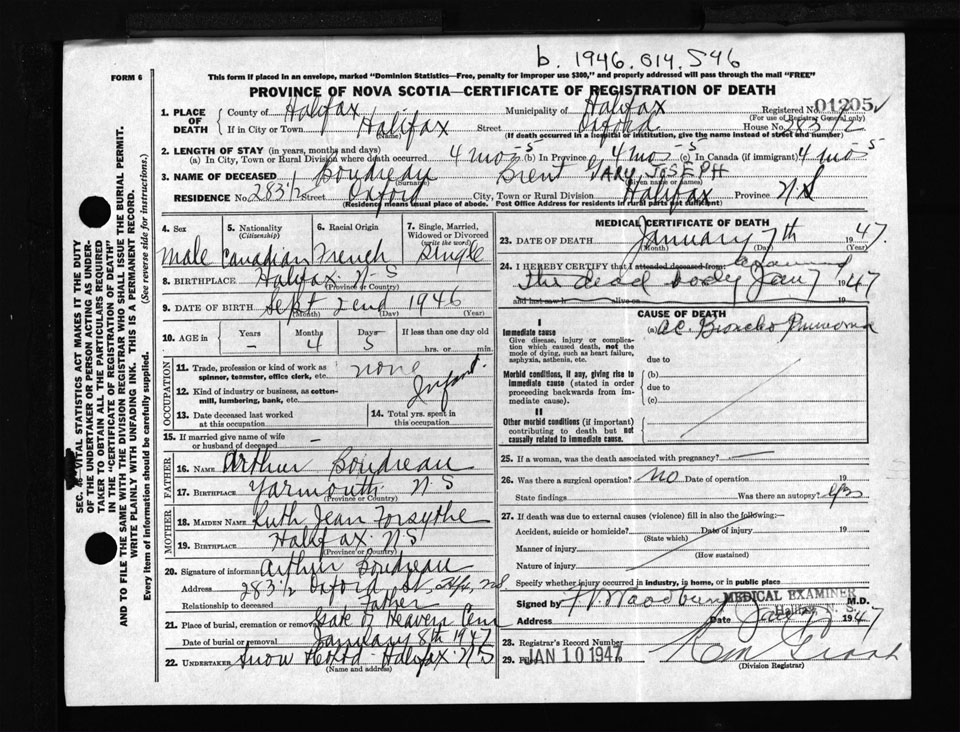 b. 1946.014.546
FORM 6
This form if placed in an envelope, marked "Dominion Statistics—Free, penalty for improper use $300," and properly addressed will pass through the mail "FREE"
PROVINCE OF NOVA SCOTIA—CERTIFICATE OF REGISTRATION OF DEATH
1. PLACE OF DEATH
County of Halifax Municipality of Halifax Registered No. 01205
(For use of Registrar General only)
If in City or Town Halifax Street Oxford House No. 283 1/2
(Name) (If death occurred in a hospital or institution, give the name instead of street and number)
2. LENGTH OF STAY (in years, months and days)
(a) In City, Town or Rural Division where death occurred 4 mos - 5 (b) In Province 4 mos - 5 (c) In Canada (if immigrant) 4 mos 5
3. NAME OF DECEASED Boudreau Brent Gary JOSEPH
(Surname) (Given names or names)
RESIDENCE No. 283 1/2 Street Oxford City, Town or Rural Division Halifax Province N.S
(Residence means usual place of abode. Post Office Address for residents in rural parts not sufficient)
4. Sex 5. Nationality (Citizenship) 6. Racial Origin 7. Single, Married, Widowed or Divorced (write the word)
Male Canadian French Single
8. BIRTHPLACE Halifax N-S
(Province or Country)
9. DATE OF BIRTH Sept 2end 1946
(Month) (Day) (Year)
10. AGE in Years Months Days If less than one day old
- 4 5 hrs. or min.
OCCUPATION
11. Trade, profession or kind of work as spinner, teamster, office clerk, etc. none
12. Kind of industry or business, as cotton-mill, lumbering, bank, etc. Infant.
13. Date deceased last worked at this occupation
14. Total yrs. spent in this occupation
15. If married give name of wife or husband of deceased —
FATHER
16. NAME Arthur Boudreau
17. BIRTHPLACE Yarmouth N S
(Province or Country)
MOTHER
18. MAIDEN NAME Ruth Jean Forsythe
19. BIRTHPLACE Halifax N.S
(Province or Country)
20. Signature of informant Arthur Boudreau
Address 283 1/2 Oxford St, Hfx, NS
Relationship to deceased Father
21. Place of burial, cremation or removal Gate of Heaven Cem
Date of burial or removal January 8th 1947
22. UNDERTAKER Snow Halifax N S
(Name and address)
MEDICAL CERTIFICATE OF DEATH
23. DATE OF DEATH January 7th 1947.
(Month) (Day)
24. I HEREBY CERTIFY that I attended deceased from: examined
the dead body Jan 7 1947
and last saw h alive on
CAUSE OF DEATH
I
Immediate cause (a) Ac. Broncho Pneumonia
Give disease, injury or complication which caused death, not the mode of dying, such as heart failure, asphyxia, asthenia, etc.
due to
Morbid conditions, if any, giving rise to immediate cause (stated in order proceeding backwards from immediate cause).
(b)
due to
(c)
II
Other morbid conditions (if important) contributing to death but not causally related to immediate cause.
25. If a woman, was the death associated with pregnancy? —
26. Was there a surgical operation? no Date of operation 19
State findings Was there an autopsy? yes
27. If death was due to external causes (violence) fill in also the following:—
Accident, suicide or homicide? Date of injury 19
(State which)
Manner of injury
(How sustained)
Nature of injury
Specify whether injury occurred in industry, in home, or in public place
MEDICAL EXAMINER
Signed by Woodbury M.D.
Halifax, N. S.
Address Date Jan 1947
28. Registrar's Record Number
29. JAN 10 1947
(Division Registrar)
SEC. VITAL STATISTICS ACT MAKES IT THE DUTY
OF THE UNDERTAKER OR PERSON ACTING AS UNDER-
TAKER TO OBTAIN ALL THE PARTICULARS REQUIRED
IN THE "CERTIFICATE OF REGISTRATION OF DEATH"
AND TO FILE THE SAME WITH THE DIVISION REGISTRAR WHO SHALL ISSUE THE BURIAL PERMIT.
WRITE PLAINLY WITH UNFADING INK. THIS IS A PERMANENT RECORD.
Every item of information should be carefully supplied. (See reverse side for instructions.)